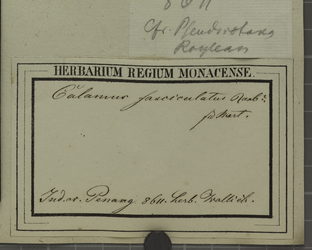 8611
Cfr. Pseudostachyum
HERBARIUM REGIUM MONACENSE.
Calamus fasciculatus Roxb:
fid Mart.
Ind. or. Penang. 8611. herb. Wallich.